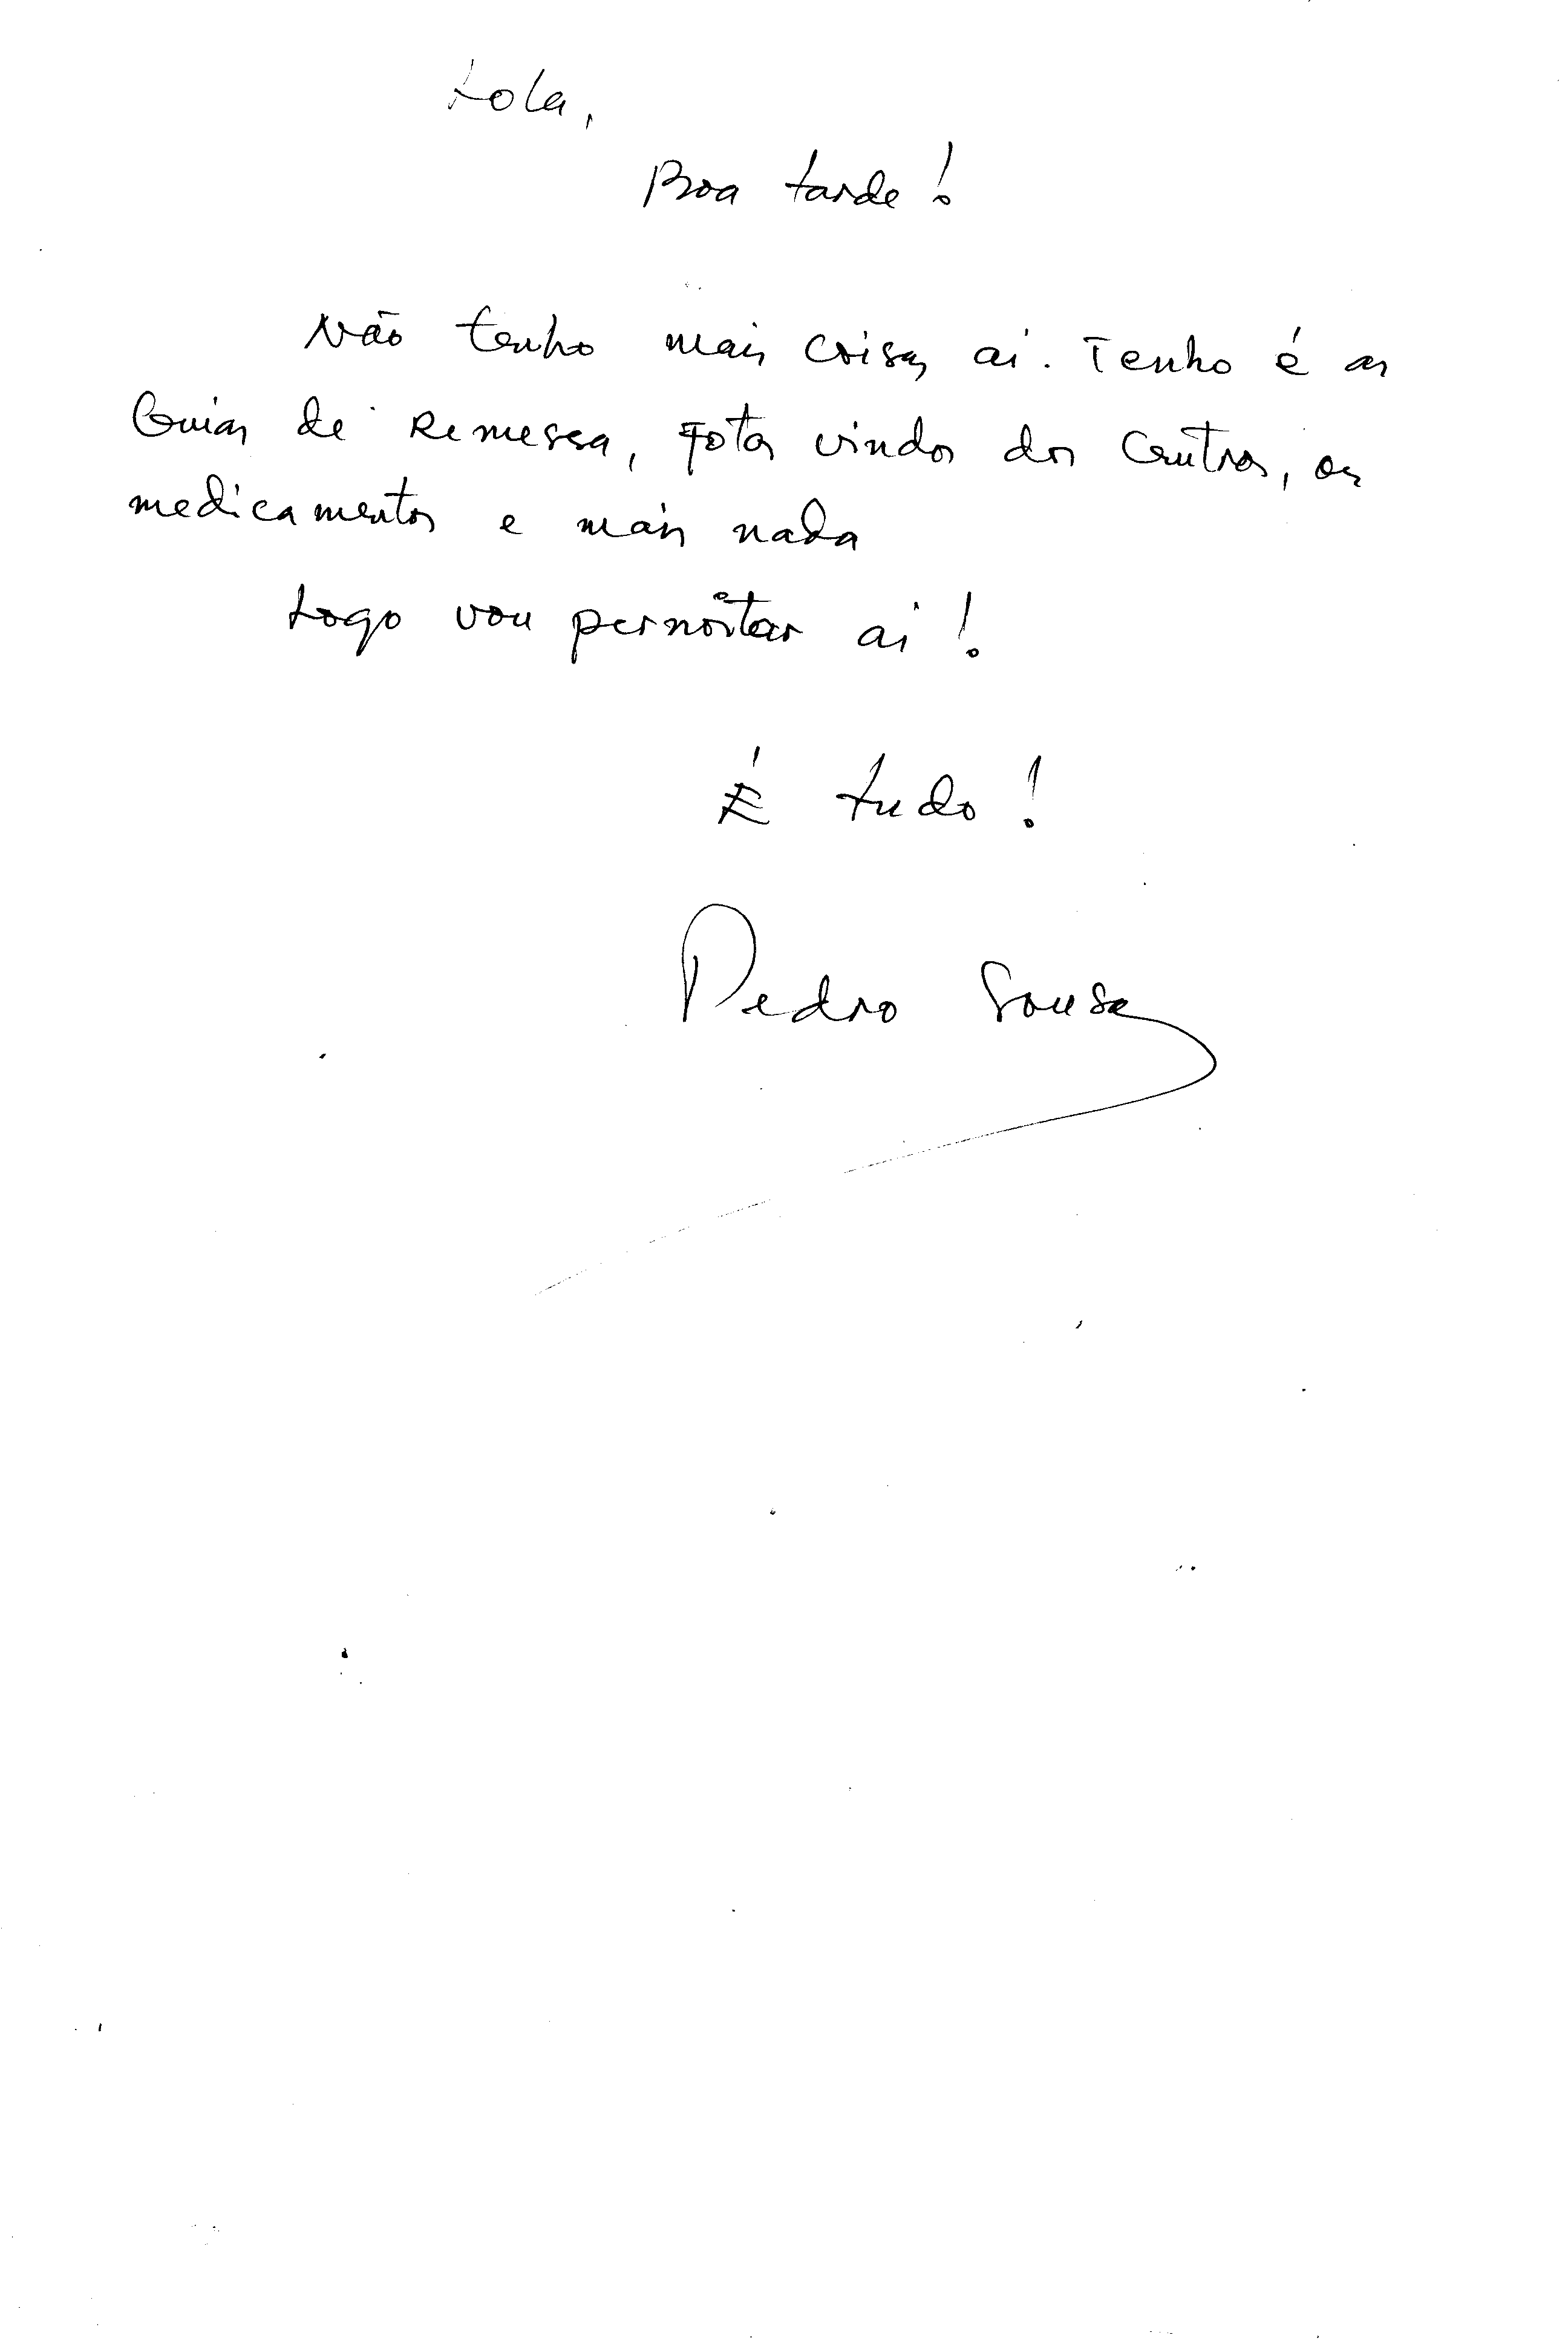 Lola,
Boa tarde!
Não tenho mais coisas aí. Tenho é as
Guias de Remessa, Fotos vindos dos Centros, os
medicamentos e mais nada
Logo vou pernoitar aí!
É tudo!
Pedro Sousa